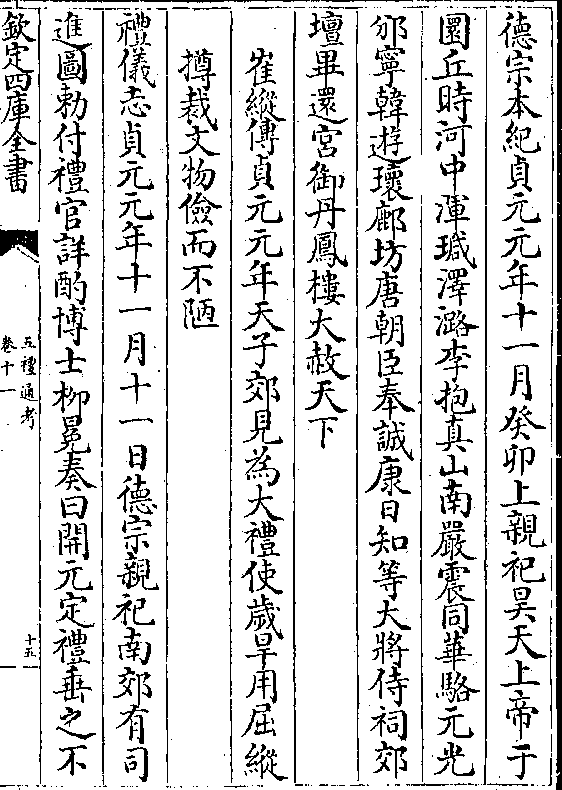 德宗本紀貞元元年十一月癸卯上親祀昊天上帝于
圜丘時河中渾瑊澤潞李抱真山南嚴震同華駱元光
邠寧韓遊瓌鄜坊唐朝臣奉誠康日知等大將侍祠郊
壇畢還宮御丹鳳樓大赦天下
崔縱傳貞元元年天子郊見為大禮使歲旱用屈縱
撙裁文物儉而不陋
禮儀志貞元元年十一月十一日德宗親祀南郊有司
進圖勅付禮官詳酌博士柳冕奏曰開元定禮垂之不
欽定四庫全書
五禮通考
卷十一
十五